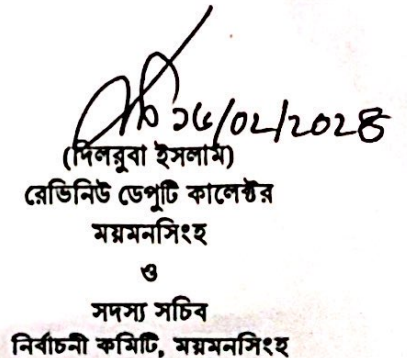 ১৫/০২/২০২৪
(দিলরুবা ইসলাম)
রেভিনিউ ডেপুটি কালেক্টর
ময়মনসিংহ
ও
সদস্য সচিব
নির্বাচনী কমিটি, ময়মনসিংহ